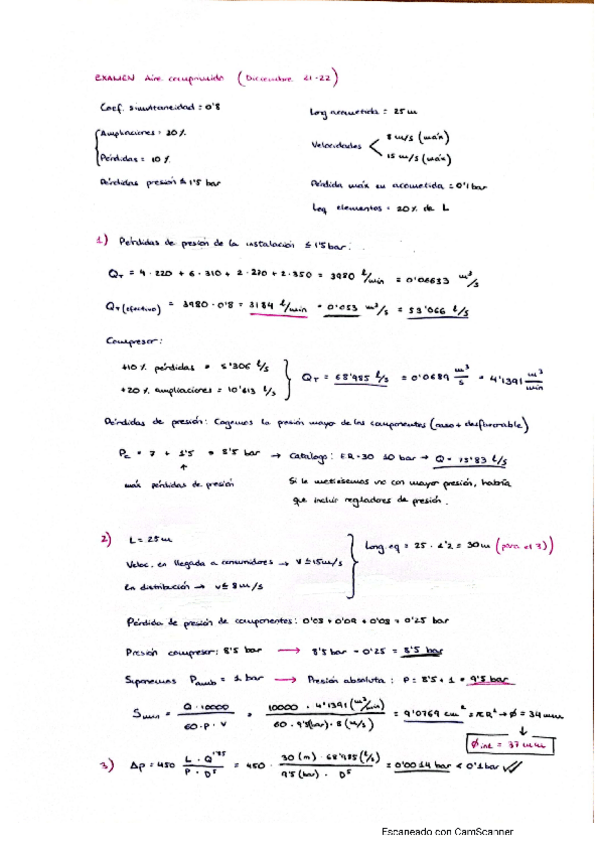 EXAMEN Aire comprimido (Diciembre 21-22)
Coef. simultaneidad = 0'8
Long acometida = 25 m
Ampliaciones = 20 %
Velocidades < 8 m/s (máx)
15 m/s (máx)
Pérdidas = 10 %
Pérdidas presión ≤ 1'5 bar
Pérdida máx en acometida = 0'1 bar
Leq elementos = 20% de L
1) Pérdidas de presión de la instalación ≤ 1'5 bar:
QT = 4 · 220 + 6 · 310 + 2 · 270 + 2 · 350 = 3980 l/min = 0'06633 m³/s
QT (efectivo) = 3980 · 0'8 = 3184 l/min = 0'053 m³/s = 53'066 l/s
Compresor:
+10 % pérdidas = 5'306 l/s
+20 % ampliaciones = 10'613 l/s
QT = 68'985 l/s = 0'0689 m³/s = 4'1391 m³/min
Pérdidas de presión: Cogemos la presión mayor de los componentes (caso + desfavorable)
Pc = 7 + 1'5 = 8'5 bar → Catálogo: ER-30 10 bar → Q = 75'83 l/s
↑
máx pérdidas de presión
Si le metiésemos uno con mayor presión, habría
que incluir reguladores de presión.
2) L = 25 m
Veloc. en llegada a consumidores → v ≤ 15 m/s
En distribución → v ≤ 8 m/s
Long eq = 25 · 1'2 = 30 m (para el 3))
Pérdida de presión de componentes: 0'03 + 0'09 + 0'08 = 0'25 bar
Presión compresor: 8'5 bar → 8'5 bar - 0'25 = 8'5 bar
Suponemos Pamb = 1 bar → Presión absoluta : P = 8'5 + 1 = 9'5 bar
Smin = Q · 10000 / 60 · P · V = 10000 · 4'1391 (m³/min) / 60 · 9'5 (bar) · 8 (m/s) = 9'0769 cm² = πR² → ϕ = 34 mm
↓
ϕint = 37 mm
3) Δp = 450 L · Q^1'85 / P · D⁵ = 450 · 30 (m) · 68'985 (l/s) / 9'5 (bar) · D⁵ = 0'0014 bar < 0'1 bar ✓
Escaneado con CamScanner